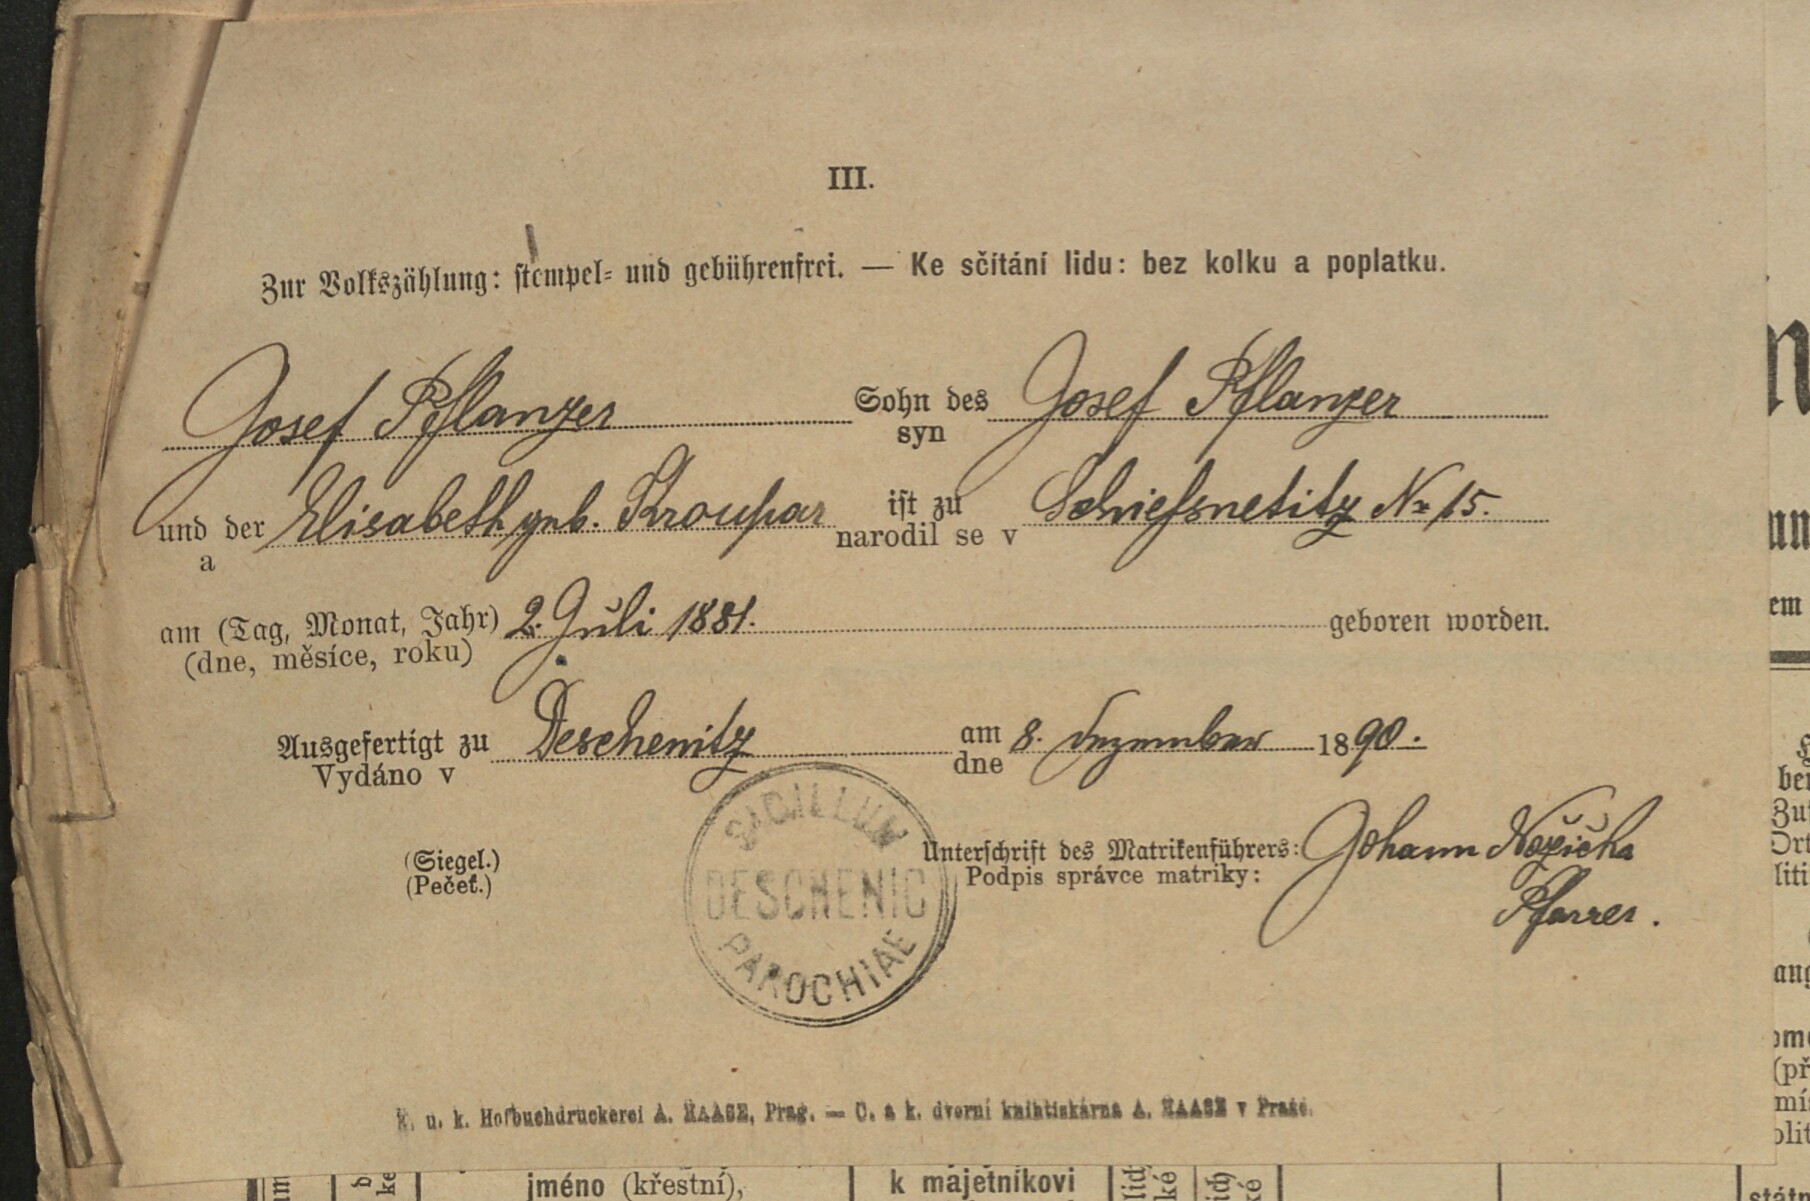 III.
Zur Volkszählung: stempel- und gebührenfrei. — Ke sčítání lidu: bez kolku a poplatku.
Josef Pflanzer Sohn des Josef Pflanzer
syn
und der Elisabeth geb. Kroupar ist zu Schiefsnetitz No 15.
a narodil se v
am (Tag, Monat, Jahr) 2. Juli 1881. geboren worden.
(dne, měsíce, roku)
Ausgefertigt zu Deschenitz am 8. Dezember 1890.
Vydáno v dne
(Siegel.)
(Pečeť.)
SIGILLUM
DESCHENIC
PAROCHIAE
Unterschrift des Matrikenführers: Johann
Podpis správce matriky:
Pfarrer.
K. u. k. Hofbuchdruckerei A. HAASE, Prag. — C. a k. dvorní knihtiskárna A. HAASE v Praze.
jméno (křestní),
k majetníkovi